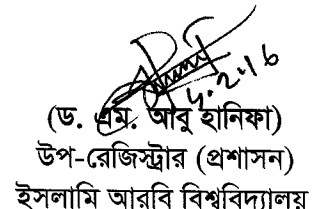 ৫.2.16
(ড. এম. আবু হানিফা)
উপ-রেজিস্ট্রার (প্রশাসন)
ইসলামি আরবি বিশ্ববিদ্যালয়